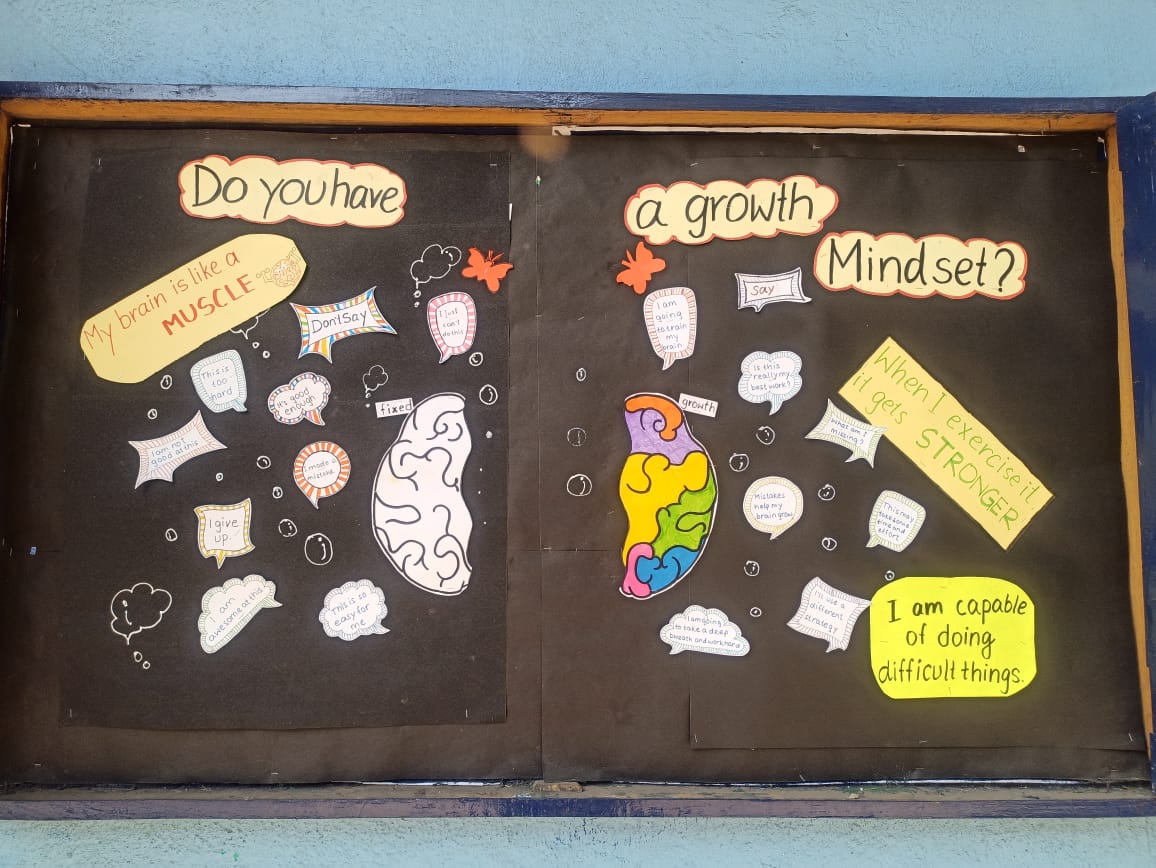 Do you have
a growth
Mindset?
My brain is like a
MUSCLE
Don't Say
I just
can't
do this
This is
too
hard
It's good
enough
I am not
good at this
made a
mistake
fixed
I give
up.
am
awesome at this
This is so
easy for
me
I am
going
to train
my
brain
Say
Is this
really my
best work?
growth
What am I
missing?
When I exercise it
it gets STRONGER
Mistakes
help my
brain grow
This may
take some
time and
effort
I'll use a
different
strategy
I am going
to take a deep
breath and work hard
I am capable
of doing
difficult things.